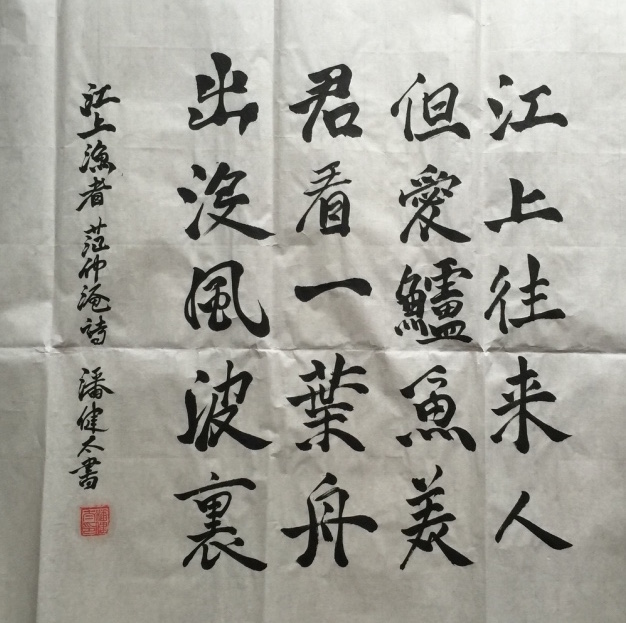 江上往来人
但愛鱸魚美
君看一葉舟
出没風波裏
江上漁者 范仲淹詩 潘健太書